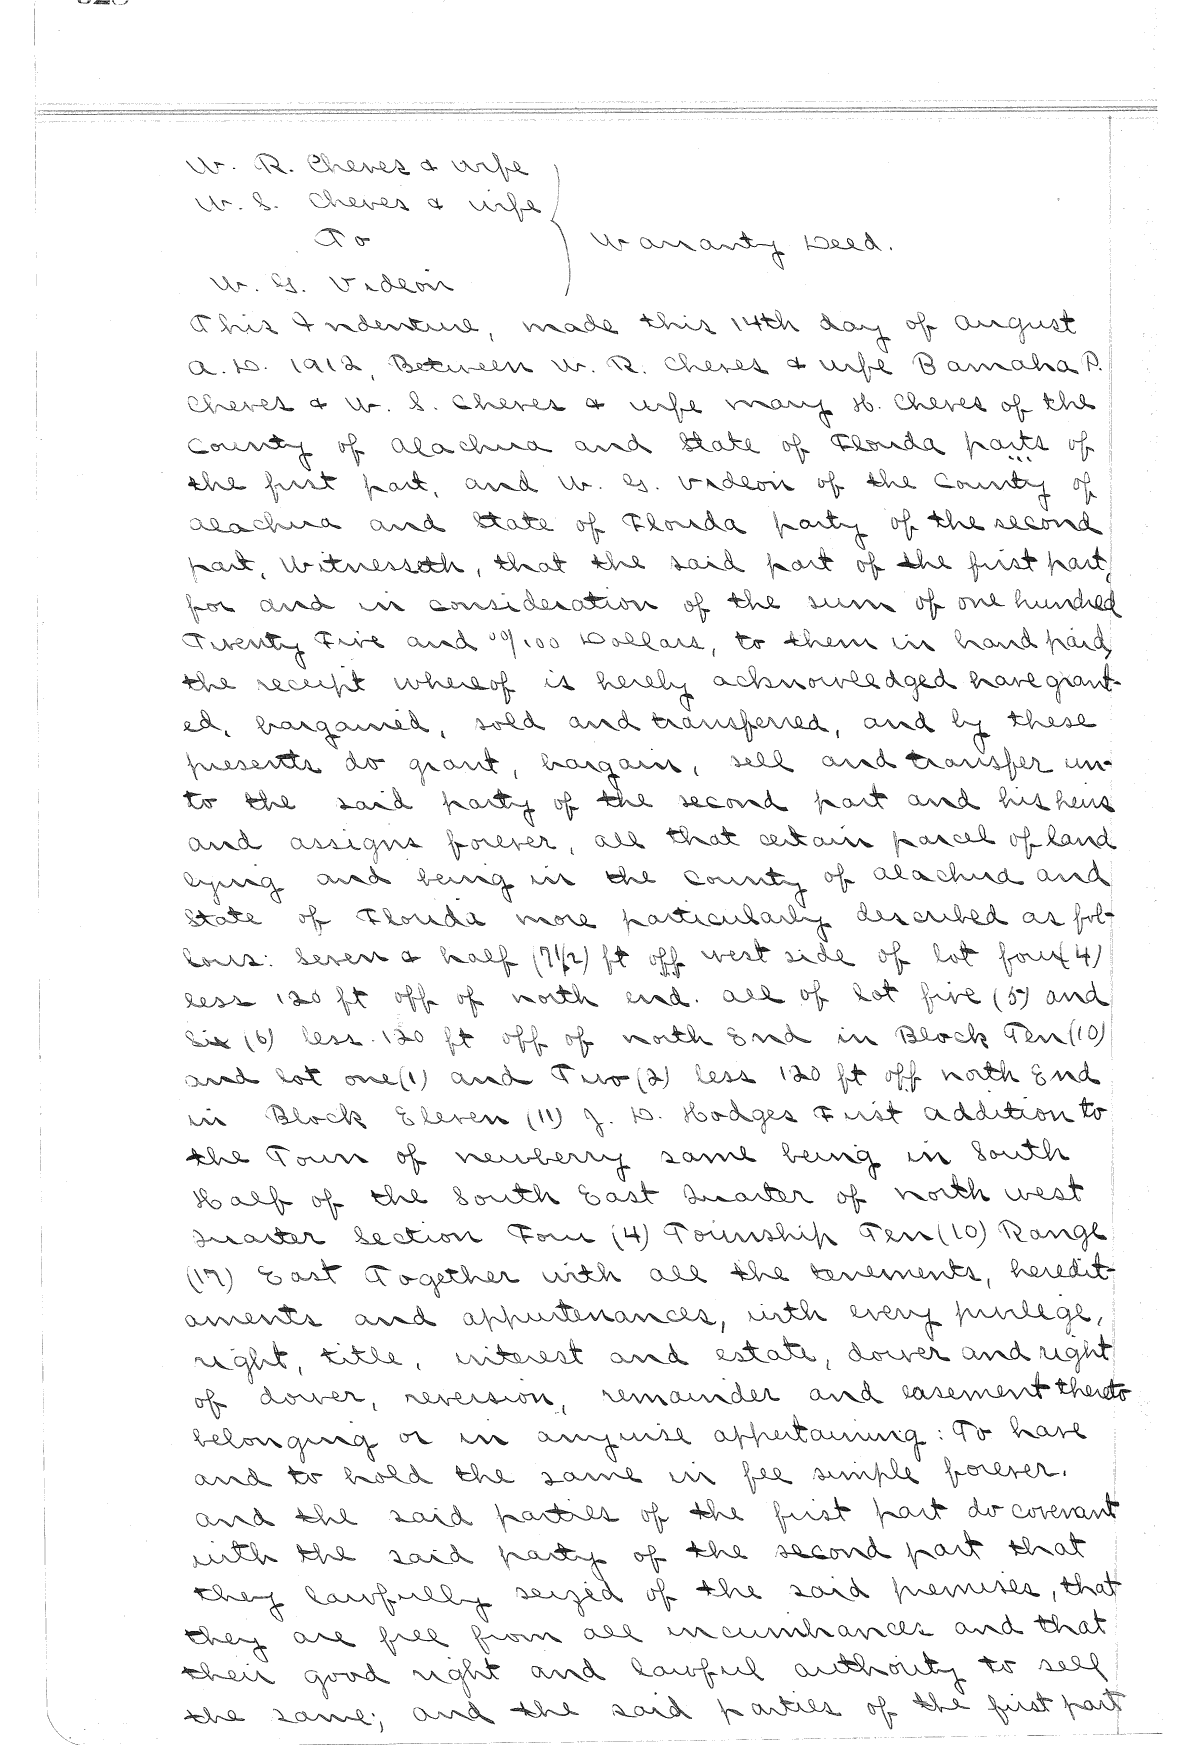 W. R. Cheves & wife
W. S. Cheves & wife
To
Warranty Deed.
W. G. Videon
This Indenture, made this 14th day of August
A. D. 1912, Between W. R. Cheves & wife Bamaha P.
Cheves & W. S. Cheves & wife Mary H. Cheves of the
County of Alachua and State of Florida parts of
the first part, and W. G. Videon of the County of
Alachua and State of Florida party of the second
part, Witnesseth, that the said part of the first part,
for and in consideration of the sum of one hundred
Twenty Five and 00/100 Dollars, to them in hand paid,
the receipt whereof is hereby acknowledged have grant-
ed, bargained, sold and transferred, and by these
presents do grant, bargain, sell and transfer un-
to the said party of the second part and his heirs
and assigns forever, all that certain parcel of land
lying and being in the County of Alachua and
State of Florida more particularly described as fol-
lows: Seven & half (7 1/2) ft off west side of lot four (4)
less 120 ft off of north end. all of lot five (5) and
Six (6) less 120 ft off of north End in Block Ten (10)
and lot one (1) and Two (2) less 120 ft off north End
in Block Eleven (11) J. D. Hodges First addition to
the Town of Newberry same being in South
Half of the South East Quarter of North West
Quarter Section Four (4) Township Ten (10) Range
(17) East Together with all the tenements, heredit-
aments and appurtenances, with every privilege,
right, title, interest and estate, dower and right
of dower, reversion, remainder and easement thereto
belonging or in anywise appertaining: To have
and to hold the same in fee simple forever.
And the said parties of the first part do covenant
with the said party of the second part that
they lawfully seized of the said premises, that
they are free from all incumbrances and that
their good right and lawful authority to sell
the same; and the said parties of the first part